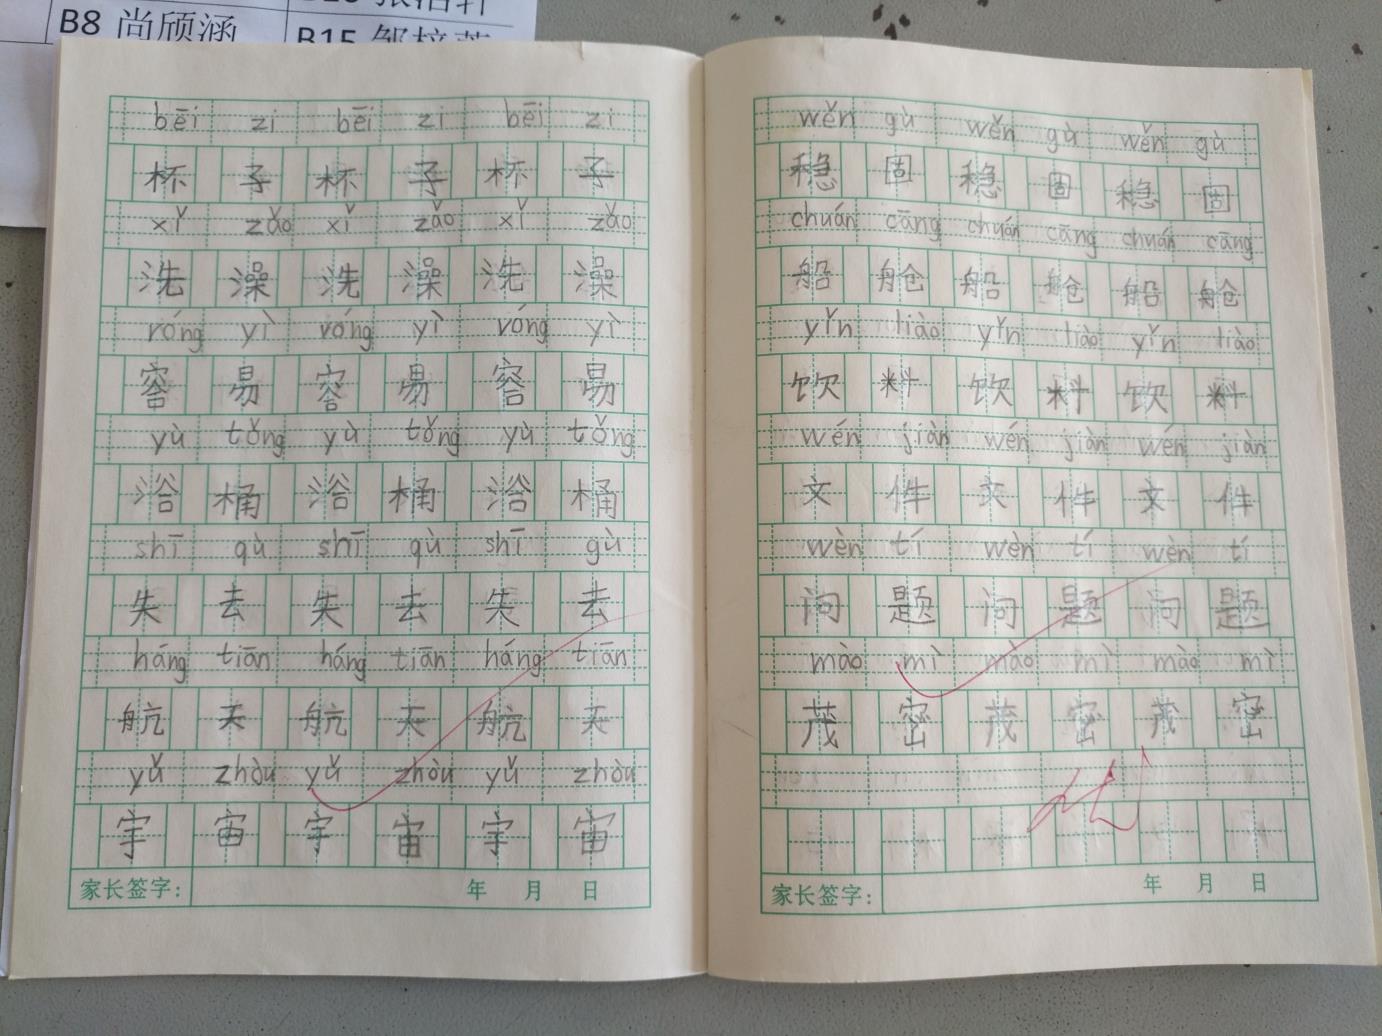 B8 尚颀涵
bēi zi bēi zi bēi zi
杯 子 杯 子 杯 子
xǐ zǎo xǐ zǎo xǐ zǎo
洗 澡 洗 澡 洗 澡
róng yì róng yì róng yì
容 易 容 易 容 易
yù tǒng yù tǒng yù tǒng
浴 桶 浴 桶 浴 桶
shī qù shī qù shī qù
失 去 失 去 失 去
háng tiān háng tiān háng tiān
航 天 航 天 航 天
yǔ zhòu yǔ zhòu yǔ zhòu
宇 宙 宇 宙 宇 宙
家长签字: 年 月 日
wěn gù wěn gù wěn gù
稳 固 稳 固 稳 固
chuán cāng chuán cāng chuán cāng
船 舱 船 舱 船 舱
yǐn liào yǐn liào yǐn liào
饮 料 饮 料 饮 料
wén jiàn wén jiàn wén jiàn
文 件 文 件 文 件
wèn tí wèn tí wèn tí
问 题 问 题 问 题
mào mì mào mì mào mì
茂 密 茂 密 茂 密
家长签字: 年 月 日